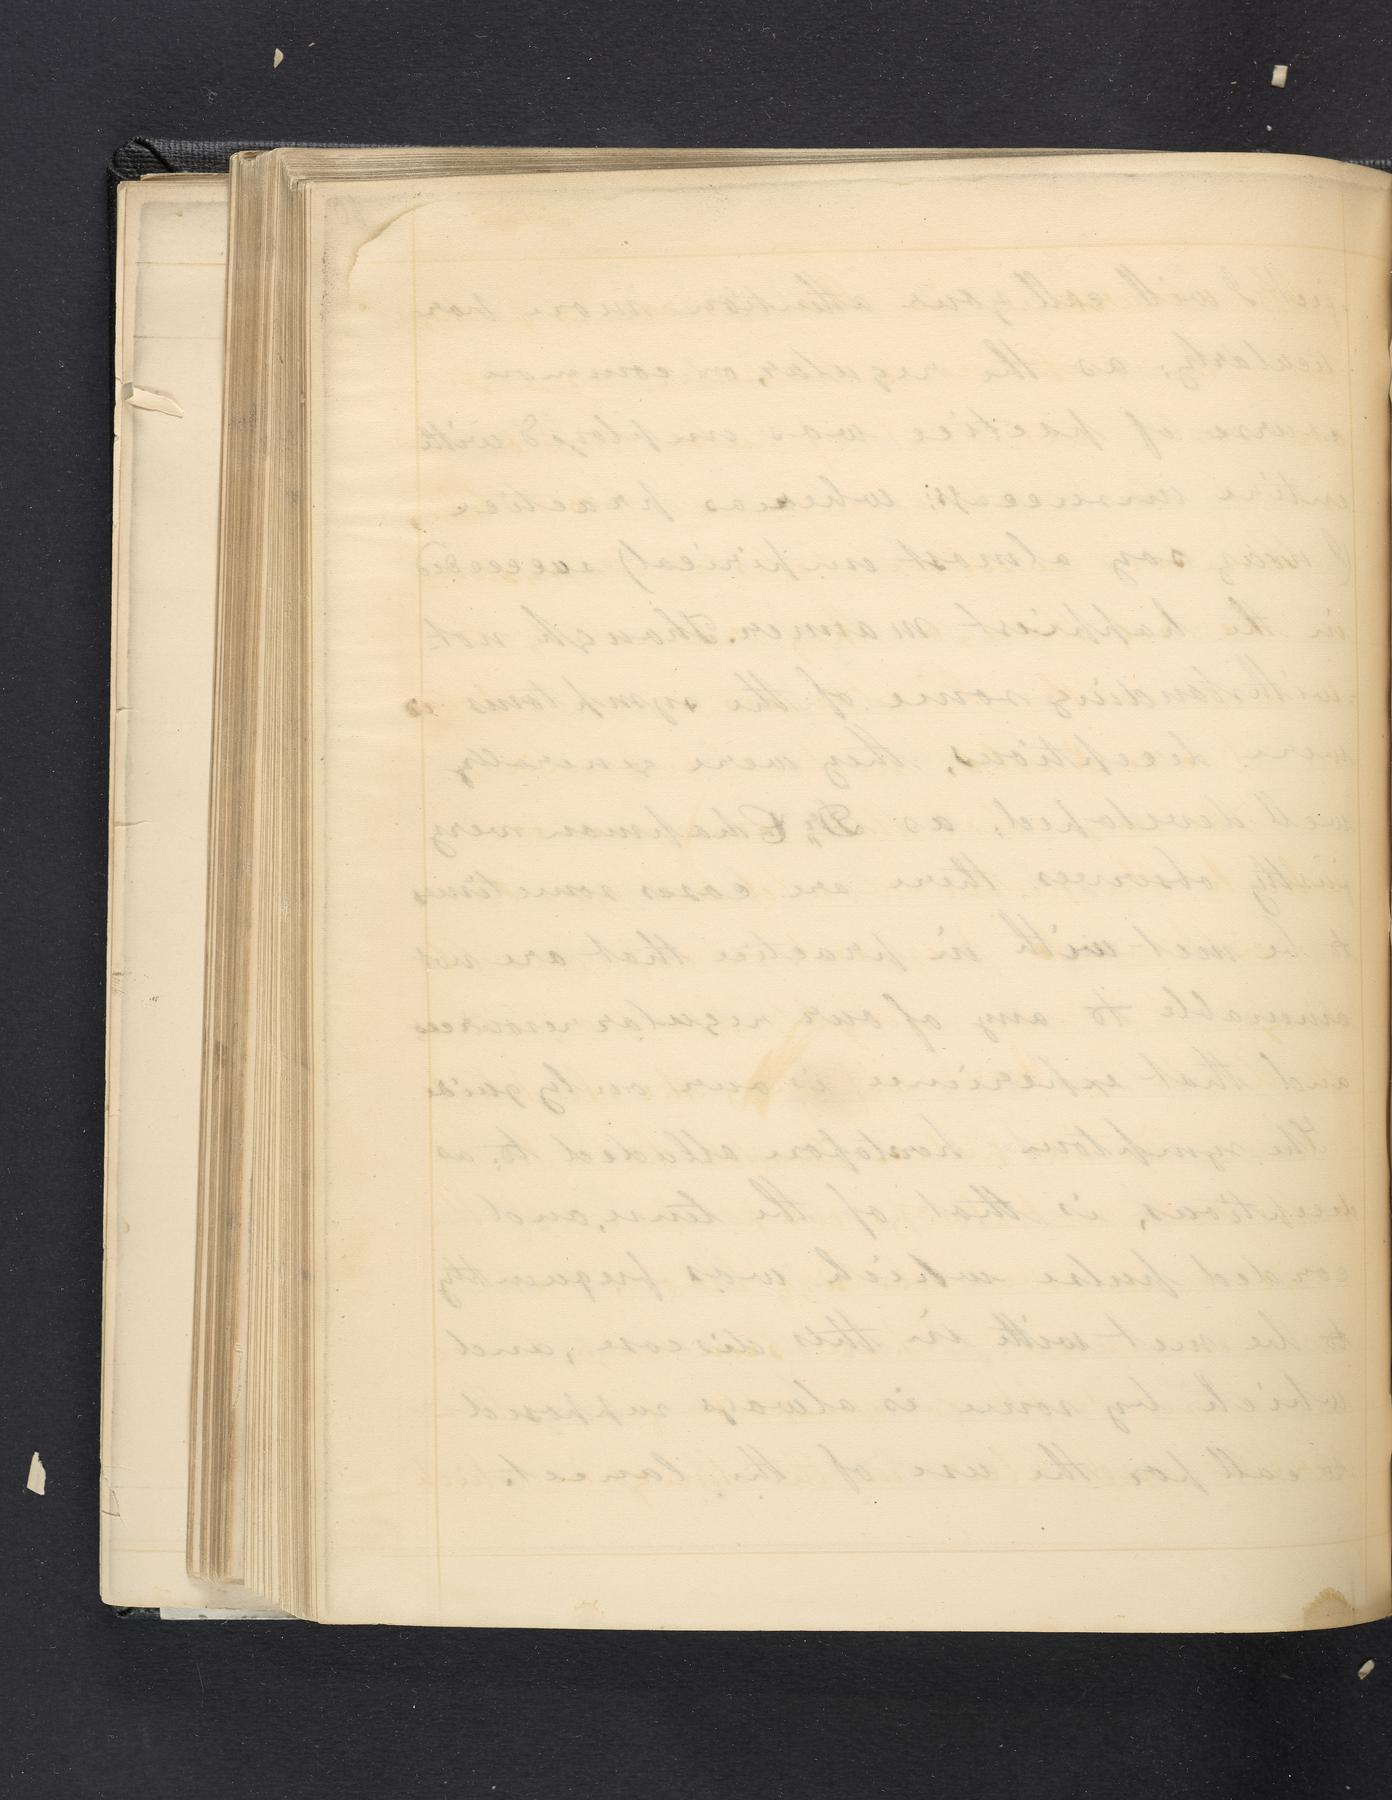 ject I will call your attention more par
ticularly; as the regular, or common
course of practice was employed with
entire unsuccess; whereas practice
I may say almost empirical, succeeded
in the happiest manner. Though not
withstanding some of the symptoms
were deceptious, they were generally
well developed, as Dr Chapman very
justly observes there are cases sometimes
to be met with in practice that are not
amenable to any of our regular resources
and that experience is our only guide
The symptom heretofore alluded to, as
deceptious, is that of the tense, and
corded pulse which was frequently
to be met with in this disease, and
which by some is always supposed
to call for the use of the lancet.